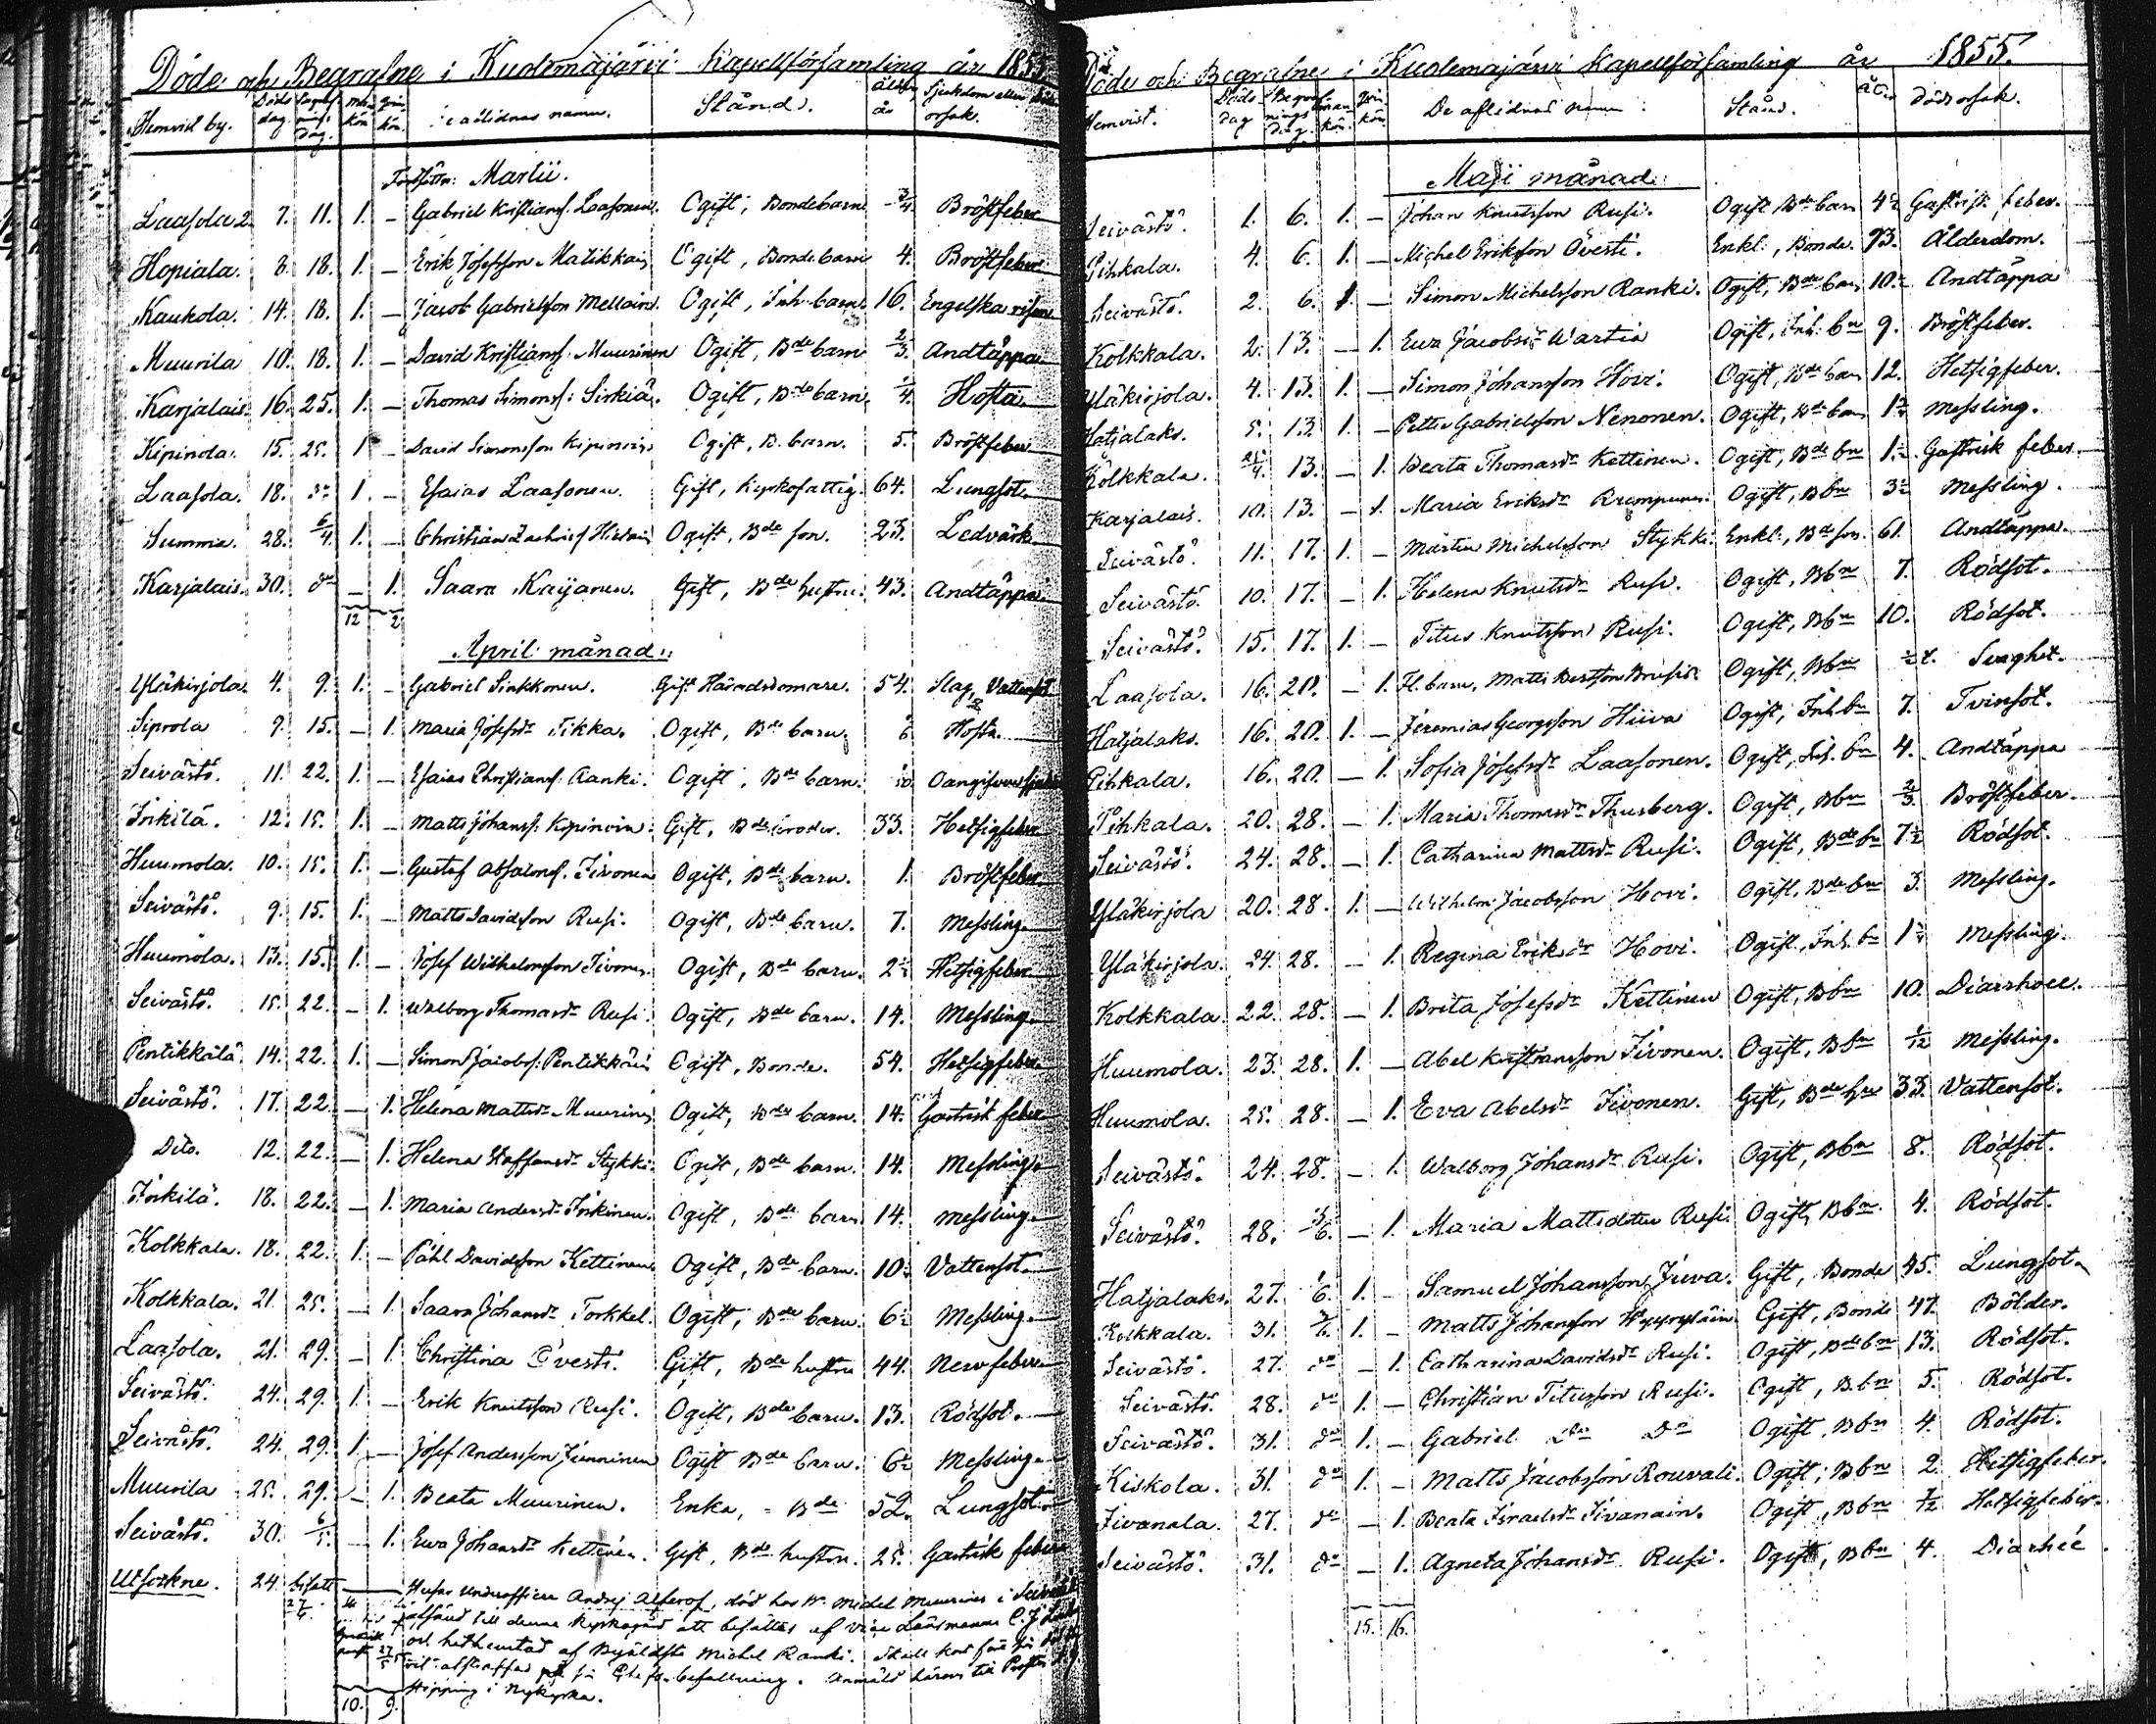 Döde och Begrafne i Kuolemajärvi Kapellförsamling år 1855
Hemvist by. Döds dag. Begrafnings dag. Man kön Qvin kön. De aflidnas namn. Stånd. Ålder år Sjukdom eller döds orsak.
Martii.
Laasola 2. 7. 11. 1. — Gabriel Kristiansf. Laasonen. Ogift, Bondebarn 3/4 Bröstfeber
Hopiala. 8. 18. 1. — Erik Josefsson Matikkain Ogift, Bondebarn 4. Bröstfeber
Kaukola. 14. 18. 1. — Jacob Gabrielsson Mellain. Ogift, Inh. barn. 16. Engelska risen
Muurila 10. 18. 1. — David Kristiansf. Muurinen Ogift, Bde barn 2/3. Andtäppa
Karjalais. 16. 25. 1. — Thomas Simonsf. Sirkiä. Ogift, Bde barn. 1/4. Hosta.
Kipinola. 15. 25. 1 — David Simonsson Kipinoin Ogift, B. barn. 5. Bröstfeber
Laasola. 18. dn 1. — Esaias Laasonen. Gift, Kyrkofattig. 64. Lungsot.
Summa. 28. 6/4. 1. — Christian Zachrisf Ogift, Bde son. 23. Ledvärk
Karjalais. 30. dn — 1. Saara Kaijanen. Gift, Bde hustru. 43. Andtäppa.
12 2
April månad:
Yläkirjola. 4. 9. 1. — Gabriel Sinkkonen. Gift Häradsdomare. 54. Slag, Vattensot
Siprola 9. 15. — 1. Maria Josefsdr Tikka. Ogift, Bde barn. Hosta.
Seivästö. 11. 22. 1. — Esaias Christiansf. Ranki. Ogift, Bde barn. Oangifven sjukd
Inkilä. 12. 15. 1. — Matts Johansf. Kipinoin. Gift, Bde broder. 33. Hetsigfeber
Huumola. 10. 15. 1. — Gustaf Absalonsf. Iivonen Ogift, Bde barn. 1. Bröstfeber.
Seivästö. 9. 15. 1. — Matts Davidsson Rusi. Ogift, Bde barn. 7. Messling.
Huumola. 13. 15. 1. — Josef Wilhelmsson Iivonen. Ogift, Bde barn. 2½ Hetsigfeber
Seivästö. 15. 22. — 1. Walborg Thomasdr Rusi. Ogift, Bde barn. 14. Messling.
Pentikkälä 14. 22. 1. — Simon Jacobsf. Pentikkäin Ogift, Bonde. 54. Hetsigfeber.
Seivästö. 17. 22. — 1. Helena Mattsdr Muurinen Ogift, Bde barn. 14. Gastrisk feber
Dito. 12. 22. — 1. Helena Staffansdr Stykki. Ogift, Bde barn. 14. Messling.
Inkilä. 18. 22. — 1. Maria Andersdr Inkinen. Ogift, Bde barn 14. Messling.
Kolkkala. 18. 22. 1. — Påhl Davidsson Kettinen. Ogift, Bde barn. 10. Vattensot.
Kolkkala. 21. 25. — 1. Saara Johansdr Torkkel. Ogift, Bde barn. 6½ Messling.
Laasola. 21. 29. — 1. Christina Övesti. Gift, Bde hustru 44. Nervfeber.
Seivästö. 24. 29. 1. — Erik Knutsson Rusi. Ogift, Bde barn. 13. Rödsot.
Seivästö. 24. 29. 1. — Josef Andersson Junninen Ogift Bde barn. 6½ Messling.
Muurila 25. 29. — 1. Beata Muurinen. Enka, Bde 52. Lungsot.
Seivästö. 30. 6/5. — 1. Ewa Johansdr Kettinen. Gift, Bde hustru. 25. Gastrisk feber
Utsokne. 24. bisatt 27/4. Husar Underofficer Andrej Alferof, död hos Michel Muurinen i Seivästö
till denne Kyrkogård att bisättas af Vice Länsmannen
och af Michel Ranki.
befallning. Anmäldt härom till Prosten
Hipping i Nykyrka.
10. 9.
Döde och Begrafne i Kuolemajärvi Kapellförsamling år 1855.
Hemvist. Döds dag Begrafnings dag. Man kön. Qvin kön. De aflidnas namn Stånd. ålder dödsorsak.
Maji månad:
Seivästö. 1. 6. 1. — Johan Knutsson Rusi. Ogift Bde barn 4½ Gastrisk feber.
Pihkala. 4. 6. 1. — Michel Eriksson Övesti. Enkl., Bonde. 73. Ålderdom.
Seivästö. 2. 6. 1. — Simon Michelsson Ranki. Ogift, Bde barn 10½ Andtäppa
Kolkkala. 2. 13. — 1. Ewa Jacobsdr Wartia Ogift, Inh. bn 9. Bröstfeber.
Yläkirjola. 4. 13. 1. — Simon Johansson Hovi. Ogift, Bde barn 12. Hetsigfeber.
Hatjalaks. 5. 13. 1. — Petter Gabrielsson Nenonen. Ogift, Bde barn 1 Messling.
Kolkkala. 13. — 1. Beata Thomasdr Kettinen. Ogift, Bde bn 1½ Gastrisk feber.
Karjalais. 10. 13. — 1. Maria Eriksdr Ogift, Bbn 3½ Messling.
Seivästö. 11. 17. 1. — Mårten Michelsson Stykki. Enkl., Bde son. 61. Andtäppa.
Seivästö. 10. 17. — 1. Helena Knutsdr Rusi. Ogift, Bbn 7. Rödsot.
Seivästö. 15. 17. 1. — Titus Knutsson Rusi. Ogift, Bbn 10. Rödsot.
Laasola. 16. 20. — 1. Fl. barn, Ogift, Bbn Svaghet.
Hatjalaks. 16. 20. 1. — Jeremias Georgsson Hiiva Ogift, Inh. bn 7. Tvinsot.
Pihkala. 16. 20. — 1. Sofia Josefsdr Laasonen. Ogift, Inh. bn 4. Andtäppa
Pihkala. 20. 28. — 1. Maria Thomasdr Thusberg. Ogift, Bbn 2/3 Bröstfeber.
Seivästö. 24. 28. — 1. Catharina Mattsdr Rusi. Ogift, Bde bn 7½ Rödsot.
Yläkirjola 20. 28. 1. — Wilhelm Jacobsson Hovi. Ogift. Bde bn 3. Messling.
Yläkirjola. 24. 28. — 1. Regina Eriksdr Hovi. Ogift, Inh. bn 1 Messling.
Kolkkala 22. 28. — 1. Brita Josefsdr Kettinen Ogift, Bbn 10. Diarrhoee.
Huumola. 23. 28. 1. — Abel Kristiansson Iivonen. Ogift, Bbn 1/12 Messling.
Huumola. 25. 28. — 1. Eva Abelsdr Iivonen. Gift, Bde hu 33. Vattensot.
Seivästö. 24. 28. — 1. Walborg Johansdr Rusi. Ogift, Bbn 8. Rödsot.
Seivästö. 28. 3/6. — 1. Maria Mattsdotter Rusi. Ogift, Bbn. 4. Rödsot.
Hatjalaks. 27. 1. — Samuel Johansson Juva. Gift, Bonde 45. Lungsot.
Kolkkala. 31. 1. — Matts Johansson Gift, Bonde 47. Bölder.
Seivästö. 27. dn — 1. Catharina Davidsdr Rusi. Ogift, Bde bn 13. Rödsot.
Seivästö. 28. dn 1. — Christian Titusson Rusi. Ogift, B. bn 5. Rödsot.
Seivästö. 31. dn 1. — Gabriel Do Do Ogift, Bbn 4. Rödsot.
Kiskola. 31. dn 1. — Matts Jacobsson Rouvali. Ogift, Bbn 2. Hetsigfeber.
Iivanala. 27. dn — 1. Beata Israelsdr Iivanain. Ogift, Bbn 7/12 Hetsigfeber.
Seivästö. 31. dn — 1. Agneta Johansdr Rusi. Ogift, Bbn 4. Diarhée.
15. 16.